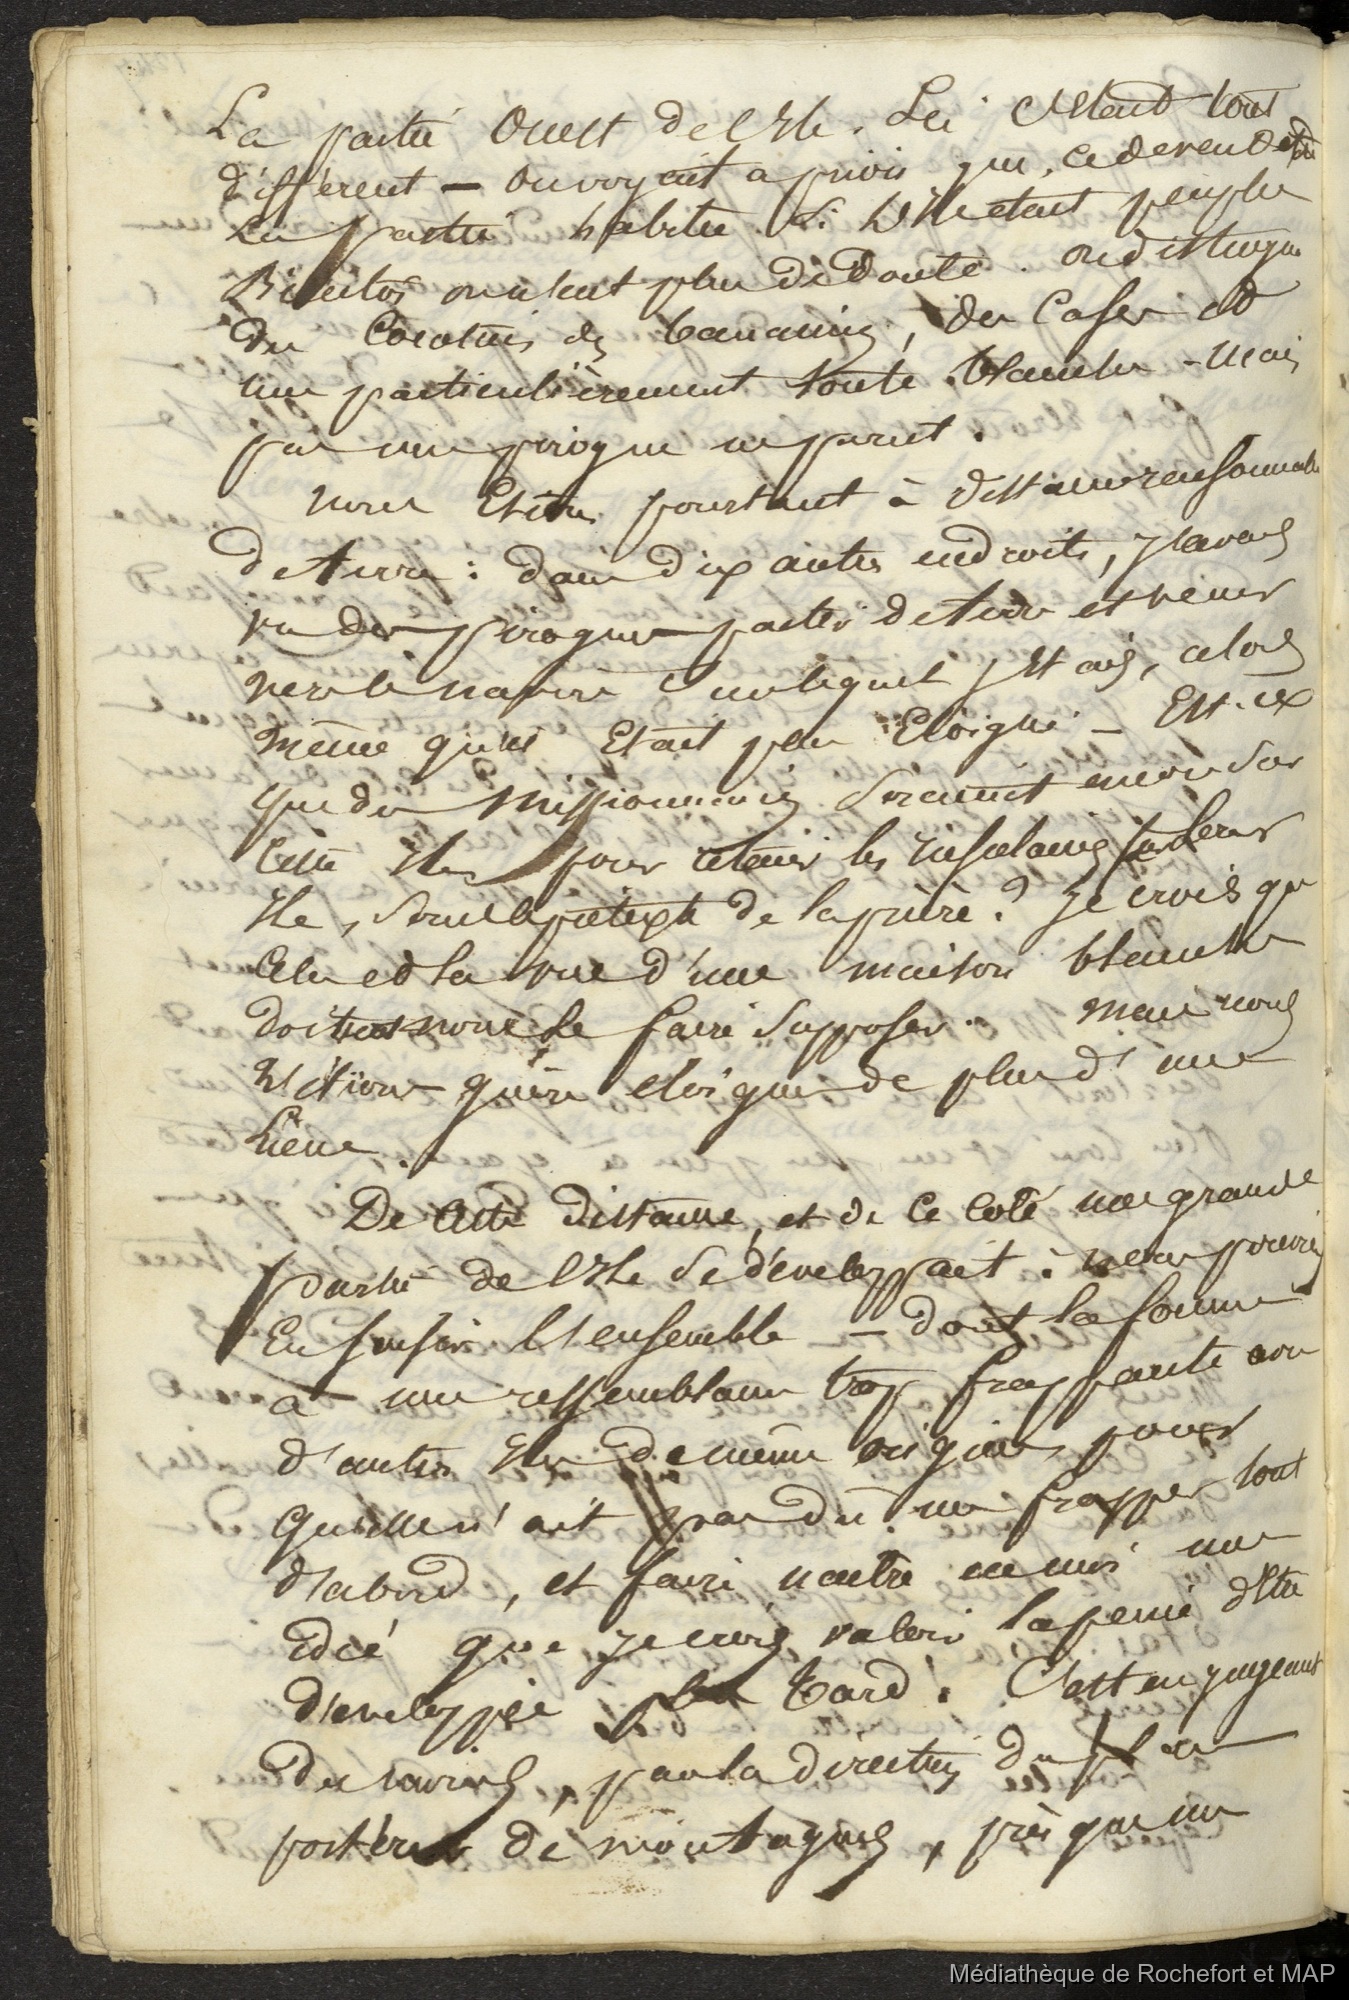 La partie Ouest de l'Ile. Ici C'Etait tout
différent — on voyait a priori que ce devait être
La partie habitée si L'Ile etait peuplée
Bientôt on n'eut plus de Doute. on distingua
Des Cocotiers des bananiers, des Cases et
une particulièrement toute blanche - Mais
pas une pirogue ne parut.
Nous Etions pourtant à distance raisonnable
de terre : dans dix autres endroits, j'avais
vu des pirogues partir de terre et venir
vers le navire sur lequel j'Etais, alors
même qu'il Etait plus Eloigné — Est-ce
que des Missionnaires seraient encore sur
Cette Ile pour retenir les insulaires sur leur
Ile, sous le prétexte de la prière ? Je crois que
Cela et la vue d'une maison blanche
doivent nous le faire supposer. Mais nous
n'étions guère eloignés de plus d'une
lieue.
De Cette distance, et de Ce Coté une grande
partie de l'Ile se développait : nous pouvions
En saisir l'ensemble — dont la forme
a une ressemblance trop frappante avec
d'autres Iles de même origine pour
qu'elle n'ait pas dû me frapper tout
d'abord, et faire naitre en moi une
Idée que je crois valoir la peine d'être
développée plus tard. C'est en jugeant
des ravins, par la direction du plan
postérieur de montagnes, presque une